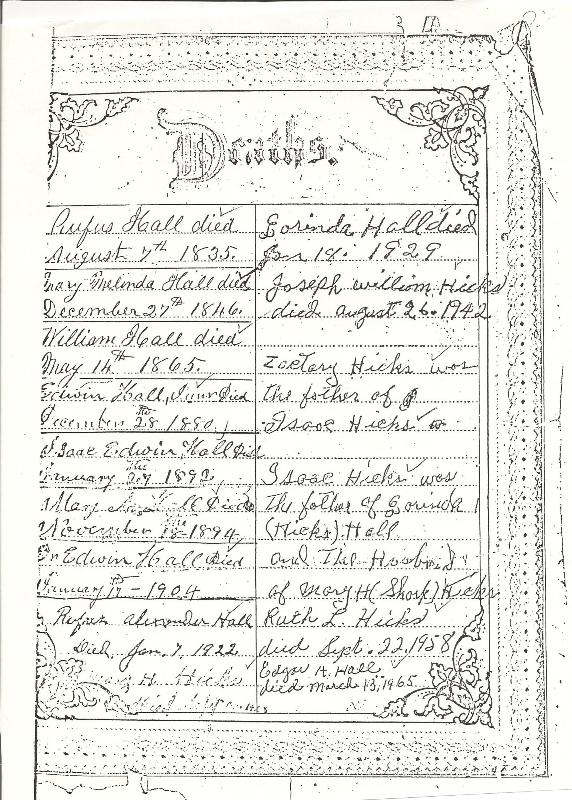 Deaths.
Rufus Hall died
August 7th 1835.
Mary Melinda Hall died
December 27th 1846.
William Hall died
May 14th 1865.
Edwin Hall, Died
December 28 1880.
Isaac Edwin Hall Died
January 29 1892.
Mary Died
November 18 - 1894
Edwin Hall Died
January 17th - 1904
Rufus Alexander Hall
Died Jan. 7 1922
H. Hicks
Died
Gorinda Hall died
Jan 18. 1929
Joseph william Hicks
died august 26. 1942
Zactary Hicks was
the father of
Isaac Hicks
Isaac Hicks was
the father of Gorinda
(Hicks) Hall
and The Husband
of Mary H (Shook) Hicks
Ruth L. Hicks
died Sept. 22, 1958
Edgar H. Hall
died March 13, 1965